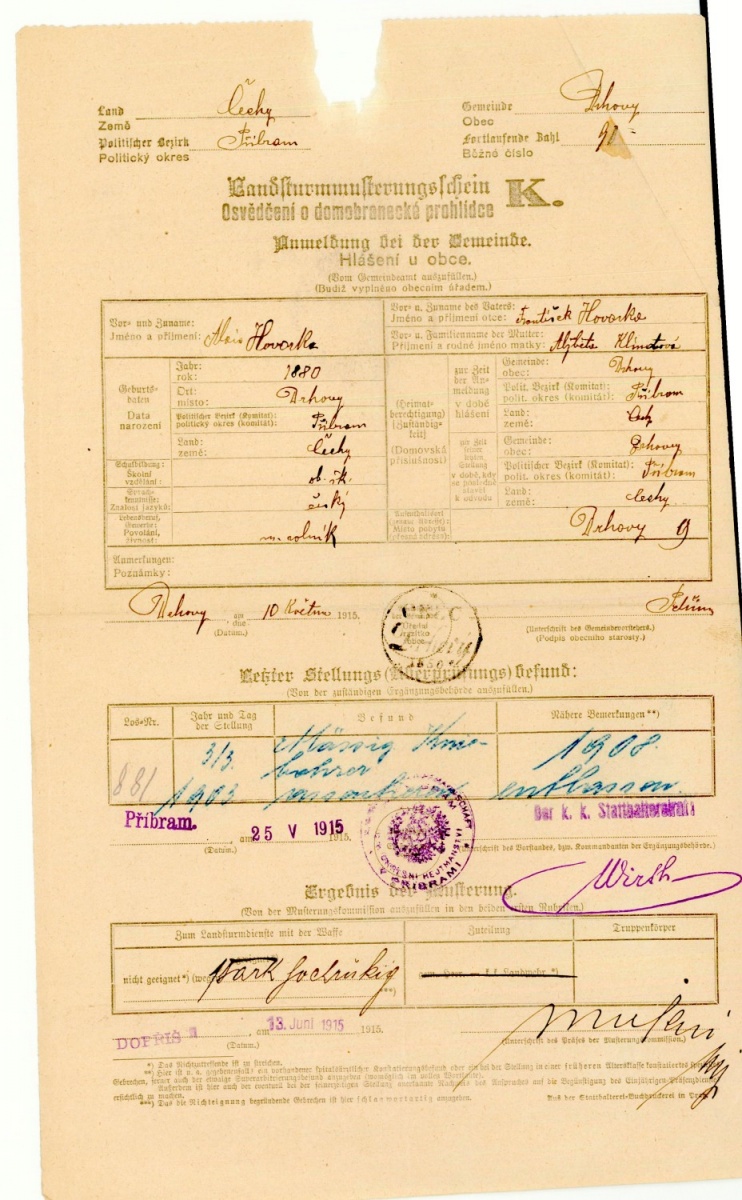 Land Čechy
Země
Politischer Bezirk Příbram
Politický okres
Gemeinde Drhovy
Obec
Fortlaufende Zahl
Běžné číslo
Landsturmmusterungsschein K.
Osvědčení o domobranecké prohlídce
Anmeldung bei der Gemeinde.
Hlášení u obce.
(Vom Gemeindeamt auszufüllen.)
(Budiž vyplněno obecním úřadem.)
Vor- und Zuname:
Jméno a příjmení: Alois Hovorka
Vor- u. Zuname des Vaters:
Jméno a příjmení otce: František Hovorka
Vor- u. Familienname der Mutter:
Příjmení a rodné jméno matky: Alžběta
Geburts-
daten
Data
narození
Jahr:
rok: 1880
Ort:
místo: Drhovy
Politischer Bezirk (Komitat):
politický okres (komitát): Příbram
Land:
země: Čechy
Schulbildung:
Školní
vzdělání: ob. šk.
Sprach-
kenntnisse:
Znalosti jazyků: český
Lebensberuf,
Gewerbe:
Povolání,
živnost:
(Heimat-
berechtigung)
(Zuständig-
keit)
(Domovská
příslušnost)
zur Zeit
der An-
meldung
v době
hlášení
Gemeinde:
obec: Drhovy
Polit. Bezirk (Komitat):
polit. okres (komitát): Příbram
Land:
země: Čechy
zur Zeit
seiner
letzten
Stellung
v době, kdy
se posledně
stavěl
k odvodu
Gemeinde:
obec: Drhovy
Politischer Bezirk (Komitat):
polit. okres (komitát): Příbram
Land:
země: Čechy
Aufenthaltsort
(genaue Adresse):
Místo pobytu
(přesná adresa): Drhovy 9
Anmerkungen:
Poznámky:
Drhovy am 10 Května 1915.
dne
(Datum.)
(Unterschrift des Gemeindevorstehers.)
(Podpis obecního starosty.)
Letzter Stellungs(Überprüfungs)befund:
(Von der zuständigen Ergänzungsbehörde auszufüllen.)
Los-Nr.
Jahr und Tag
der Stellung
Befund
Nähere Bemerkungen**)
881
3/3.
1903
Mässig
1908.
entlassen.
Příbram. am 25 V 1915 1915.
(Datum.)
OKRESNÍ HEJTMANSTVÍ
V PŘÍBRAMI
Der k. k. Statthaltereirat:
(Unterschrift des Vorstandes, bzw. Kommandanten der Ergänzungsbehörde.)
Wirth
Ergebnis der Musterung.
(Von der Musterungskommission auszufüllen in den beiden ersten Rubriken.)
Zum Landsturmdienste mit der Waffe
Zuteilung
Truppenkörper
nicht geeignet*) (weg
***)
zum Heer — k. k. Landwehr *)
DOPŘIŠ am 13. Juni 1915 1915.
(Datum.)
(Unterschrift des Präses der Musterungskommission.)
*) Das Nichtzutreffende ist zu streichen.
***) Das die Nichteignung begründende Gebrechen ist hier schlagwortartig anzugeben.
Aus der Statthalterei-Buchdruckerei in Prag.